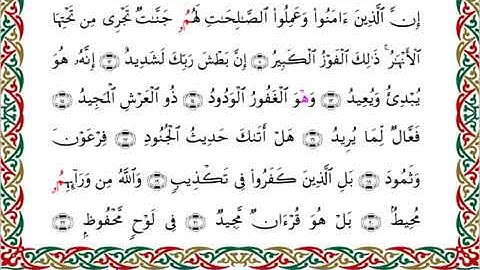 إِنَّ ٱلَّذِينَ ءَامَنُوا۟ وَعَمِلُوا۟ ٱلصَّـٰلِحَـٰتِ لَهُمُۥ جَنَّـٰتٌ تَجْرِى مِن تَحْتِهَا
ٱلْأَنْهَـٰرُ ۚ ذَٰلِكَ ٱلْفَوْزُ ٱلْكَبِيرُ ١١ إِنَّ بَطْشَ رَبِّكَ لَشَدِيدٌ ١٢ إِنَّهُۥ هُوَ
يُبْدِئُ وَيُعِيدُ ١٣ وَهْوَ ٱلْغَفُورُ ٱلْوَدُودُ ١٤ ذُو ٱلْعَرْشِ ٱلْمَجِيدُ ١٥
فَعَّالٌ لِّمَا يُرِيدُ ١٦ هَلْ أَتَىٰكَ حَدِيثُ ٱلْجُنُودِ ١٧ فِرْعَوْنَ
وَثَمُودَ ١٨ بَلِ ٱلَّذِينَ كَفَرُوا۟ فِى تَكْذِيبٍ ١٩ وَٱللَّهُ مِن وَرَآئِهِمُۥ
مُّحِيطٌۢ ٢٠ بَلْ هُوَ قُرْءَانٌ مَّجِيدٌ ٢١ فِى لَوْحٍ مَّحْفُوظٍۭ ٢٢